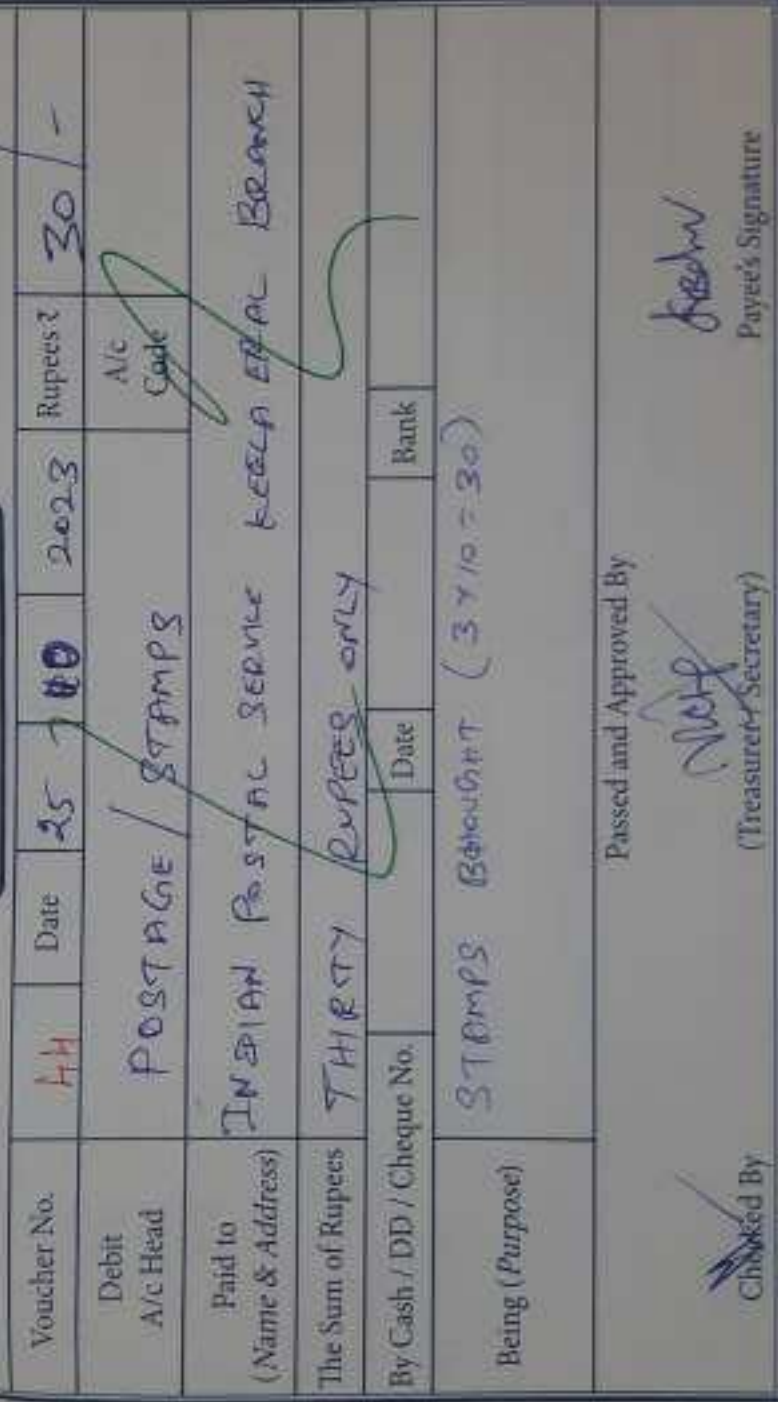 Voucher No. 44 Date 25 10 2023 Rupees ₹ 30/-
Debit A/c Head POSTAGE / STAMPS A/c Code
Paid to (Name & Address) INDIAN POSTAL SERVICE KEELA ERAL BRANCH
The Sum of Rupees THIRTY RUPEES ONLY
By Cash / DD / Cheque No. Date Bank
Being (Purpose) STAMPS BOUGHT (3 x 10 = 30)
Passed and Approved By
Checked By (Treasurer / Secretary) Payee's Signature